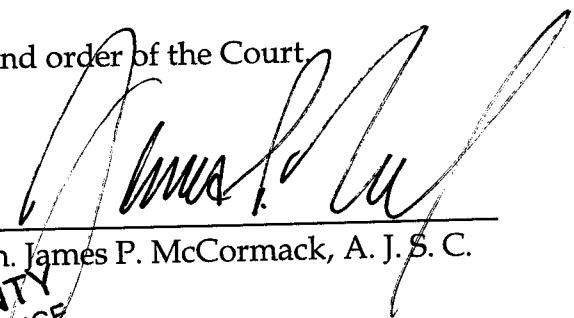 nd order of the Court.
James P.
n. James P. McCormack, A. J. S. C.
NTY